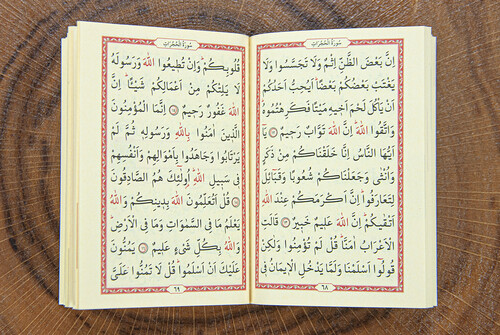 سُورَةُ الْحُجُرَاتِ
اِنَّ بَعْضَ الظَّنِّ اِثْمٌ وَلَا تَجَسَّسُوا وَلَا
يَغْتَبْ بَعْضُكُمْ بَعْضًا اَيُحِبُّ اَحَدُكُمْ
اَنْ يَأْكُلَ لَحْمَ اَخِيهِ مَيْتًا فَكَرِهْتُمُوهُ
وَاتَّقُوا اللّٰهَ اِنَّ اللّٰهَ تَوَّابٌ رَحِيمٌ ﴿١٢﴾ يَٓا
اَيُّهَا النَّاسُ اِنَّا خَلَقْنَاكُمْ مِنْ ذَكَرٍ
وَاُنْثٰى وَجَعَلْنَاكُمْ شُعُوبًا وَقَبَٓائِلَ
لِتَعَارَفُوا اِنَّ اَكْرَمَكُمْ عِنْدَ اللّٰهِ
اَتْقٰيكُمْ اِنَّ اللّٰهَ عَلِيمٌ خَبِيرٌ ﴿١٣﴾ قَالَتِ
الْاَعْرَابُ اٰمَنَّا قُلْ لَمْ تُؤْمِنُوا وَلٰكِنْ
قُولُٓوا اَسْلَمْنَا وَلَمَّا يَدْخُلِ الْاِيمَانُ فِى
٦٨
سُورَةُ الْحُجُرَاتِ
قُلُوبِكُمْ وَاِنْ تُطِيعُوا اللّٰهَ وَرَسُولَهُ
لَا يَلِتْكُمْ مِنْ اَعْمَالِكُمْ شَيْئًا اِنَّ
اللّٰهَ غَفُورٌ رَحِيمٌ ﴿١٤﴾ اِنَّمَا الْمُؤْمِنُونَ
الَّذِينَ اٰمَنُوا بِاللّٰهِ وَرَسُولِهِ ثُمَّ لَمْ
يَرْتَابُوا وَجَاهَدُوا بِاَمْوَالِهِمْ وَاَنْفُسِهِمْ
فِى سَبِيلِ اللّٰهِ اُولٰٓئِكَ هُمُ الصَّادِقُونَ
﴿١٥﴾ قُلْ اَتُعَلِّمُونَ اللّٰهَ بِدِينِكُمْ وَاللّٰهُ
يَعْلَمُ مَا فِى السَّمٰوَاتِ وَمَا فِى الْاَرْضِ
وَاللّٰهُ بِكُلِّ شَىْءٍ عَلِيمٌ ﴿١٦﴾ يَمُنُّونَ
عَلَيْكَ اَنْ اَسْلَمُوا قُلْ لَا تَمُنُّوا عَلَىَّ
٦٩